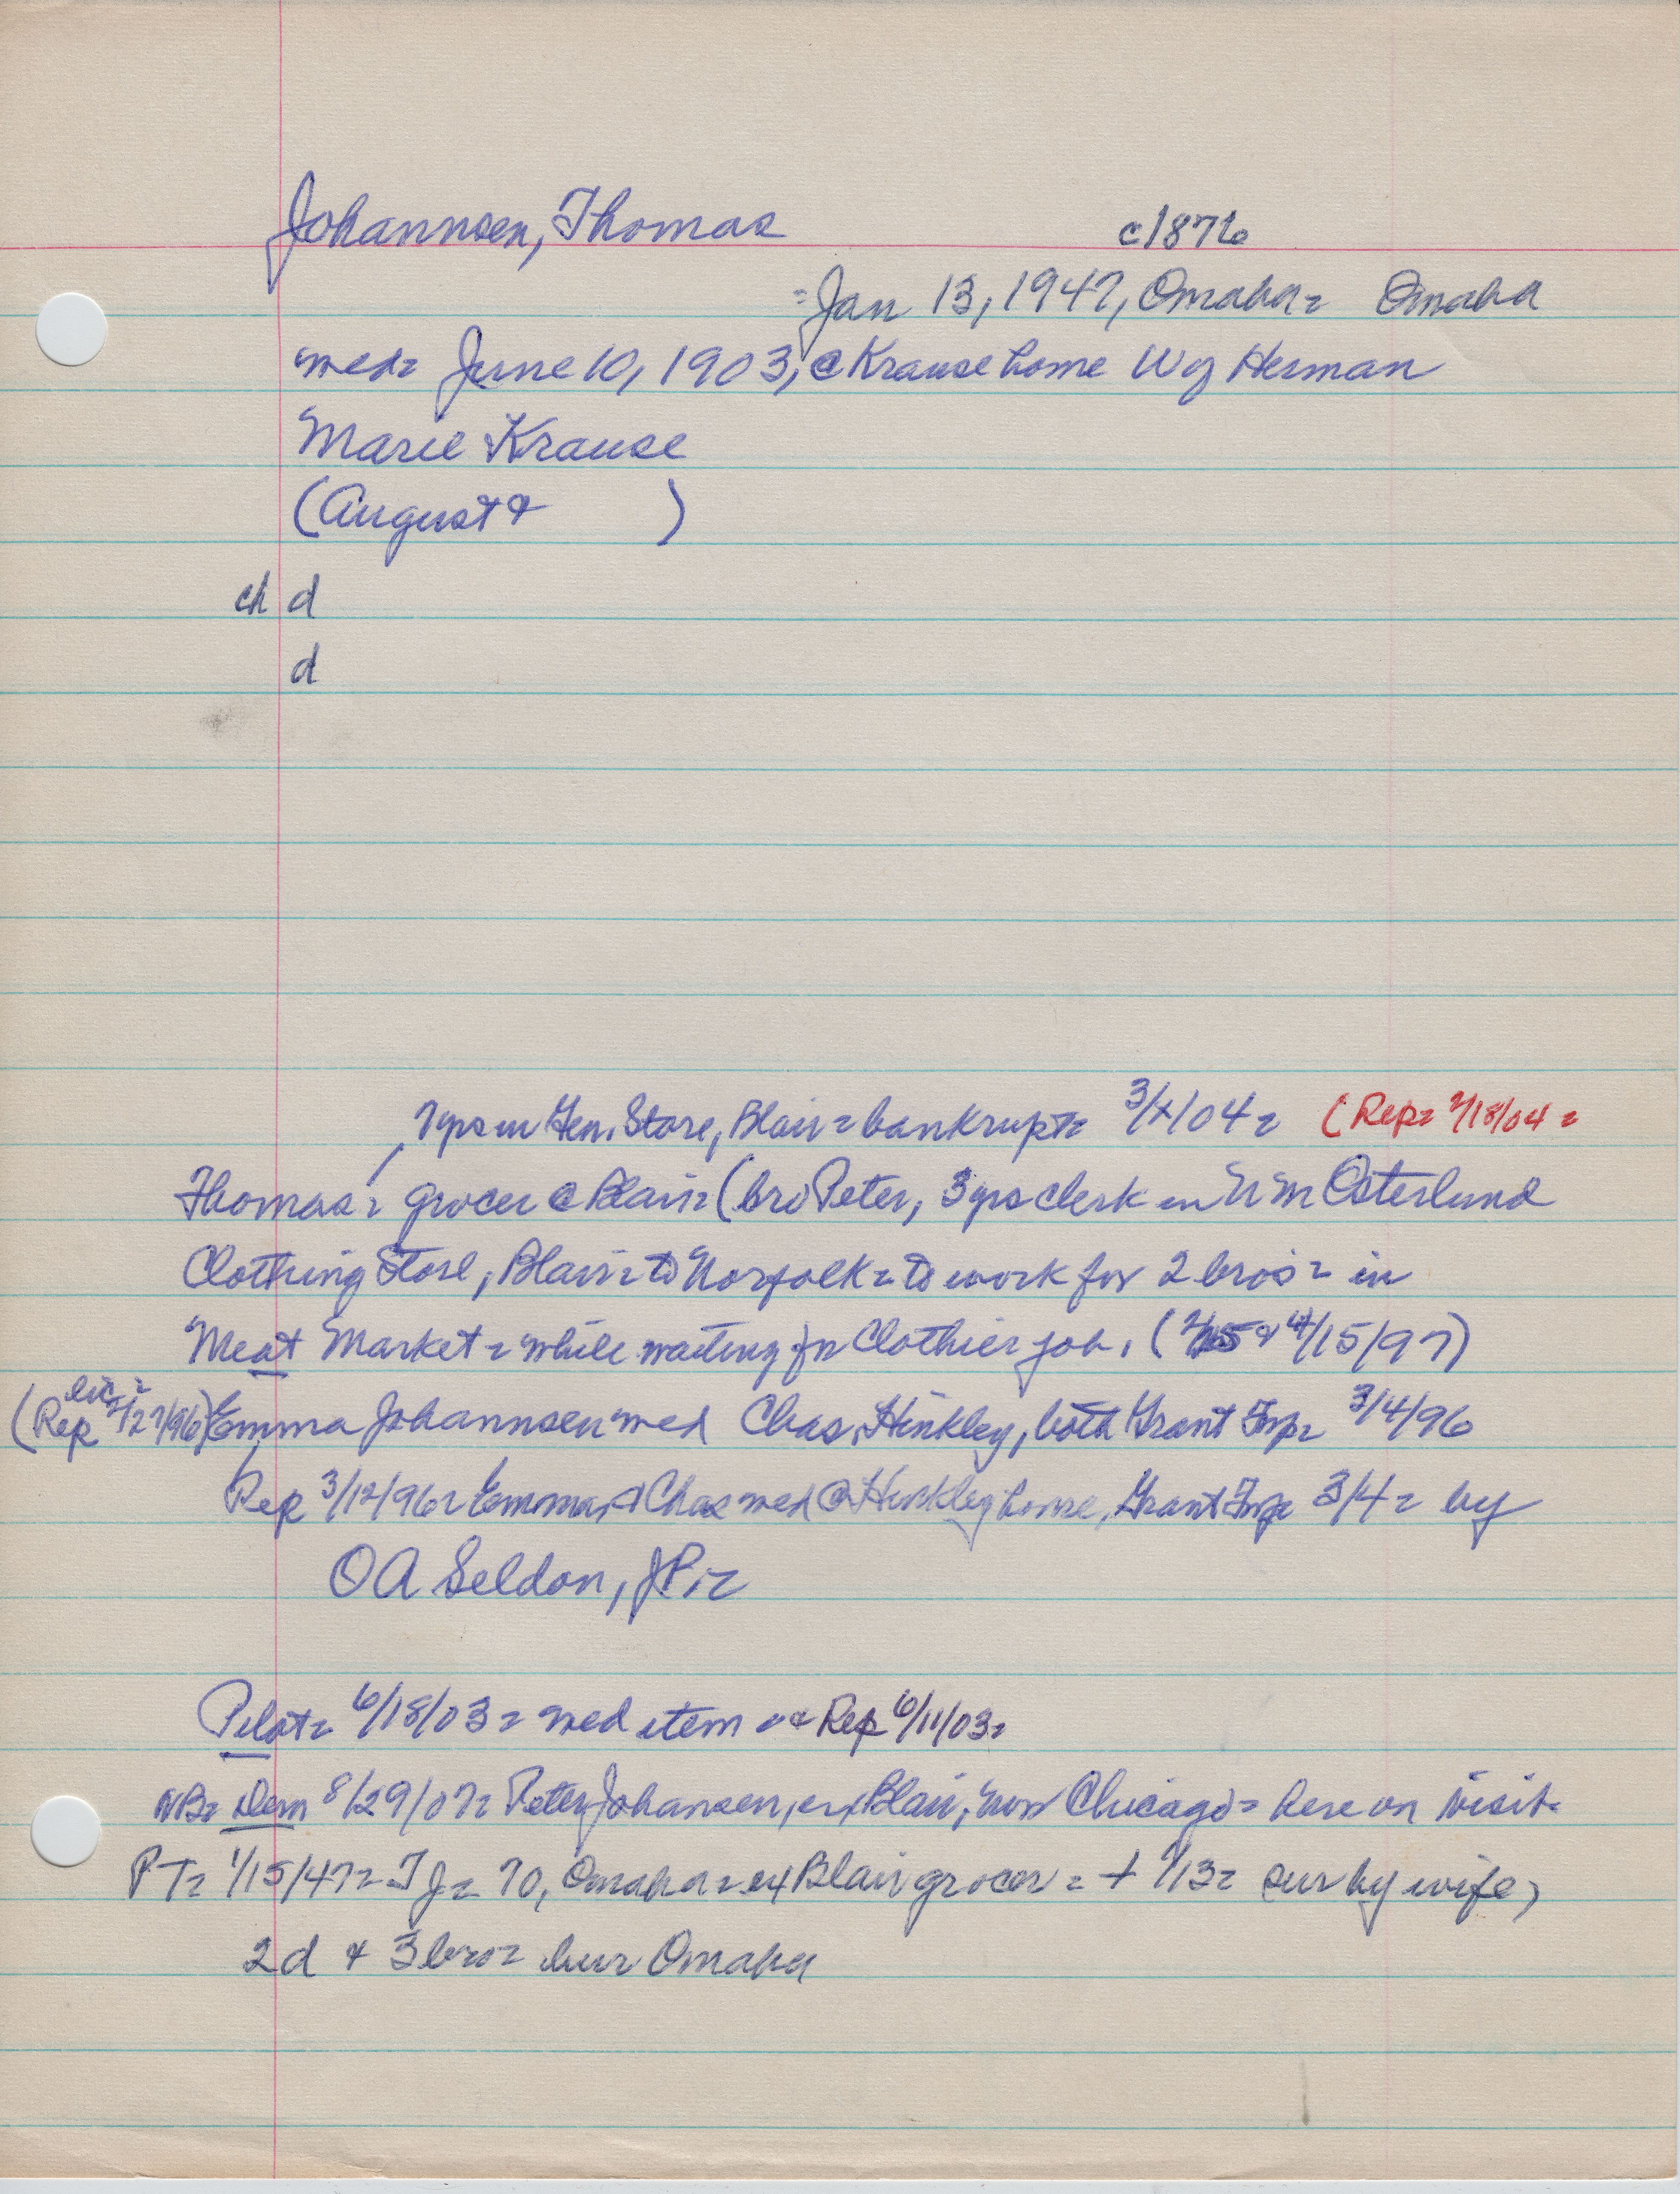 Johannsen, Thomas c1876
= Jan 13, 1947, Omaha = Omaha
med= June 10, 1903, @ Krause home W of Herman
Marie Krause
(August & )
ch d
d
7 yrs in Gen. Store, Blair = bankrupt = 3/4/04 = (Rep = 2/18/04 =
Thomas = grocer @ Blair = (bro Peter, 3 yrs clerk in Osterlund
Clothing Store, Blair = to Norfolk = to work for 2 bros = in
Meat Market = while waiting for Clothier job. ( & 4/15/97)
(Rep lic = 2/27/96) Emma Johannsen med Chas. Hinkley, both Grant Twp = 3/4/96
Rep 3/12/96 = Emma & Chas med @ Hinkley home, Grant Twp 3/4 = by
OA Seldon, JP. =
Pilot = 6/18/03 = med item & Rep 6/11/03 =
NB = Dem 8/29/07 = Peter Johansen, ex Blair, now Chicago = here on visit.
PT = 1/15/47 = TJ = 70, Omaha = ex Blair grocer = + 1/13 = sur by wife,
2d & 3 bro = bur Omaha